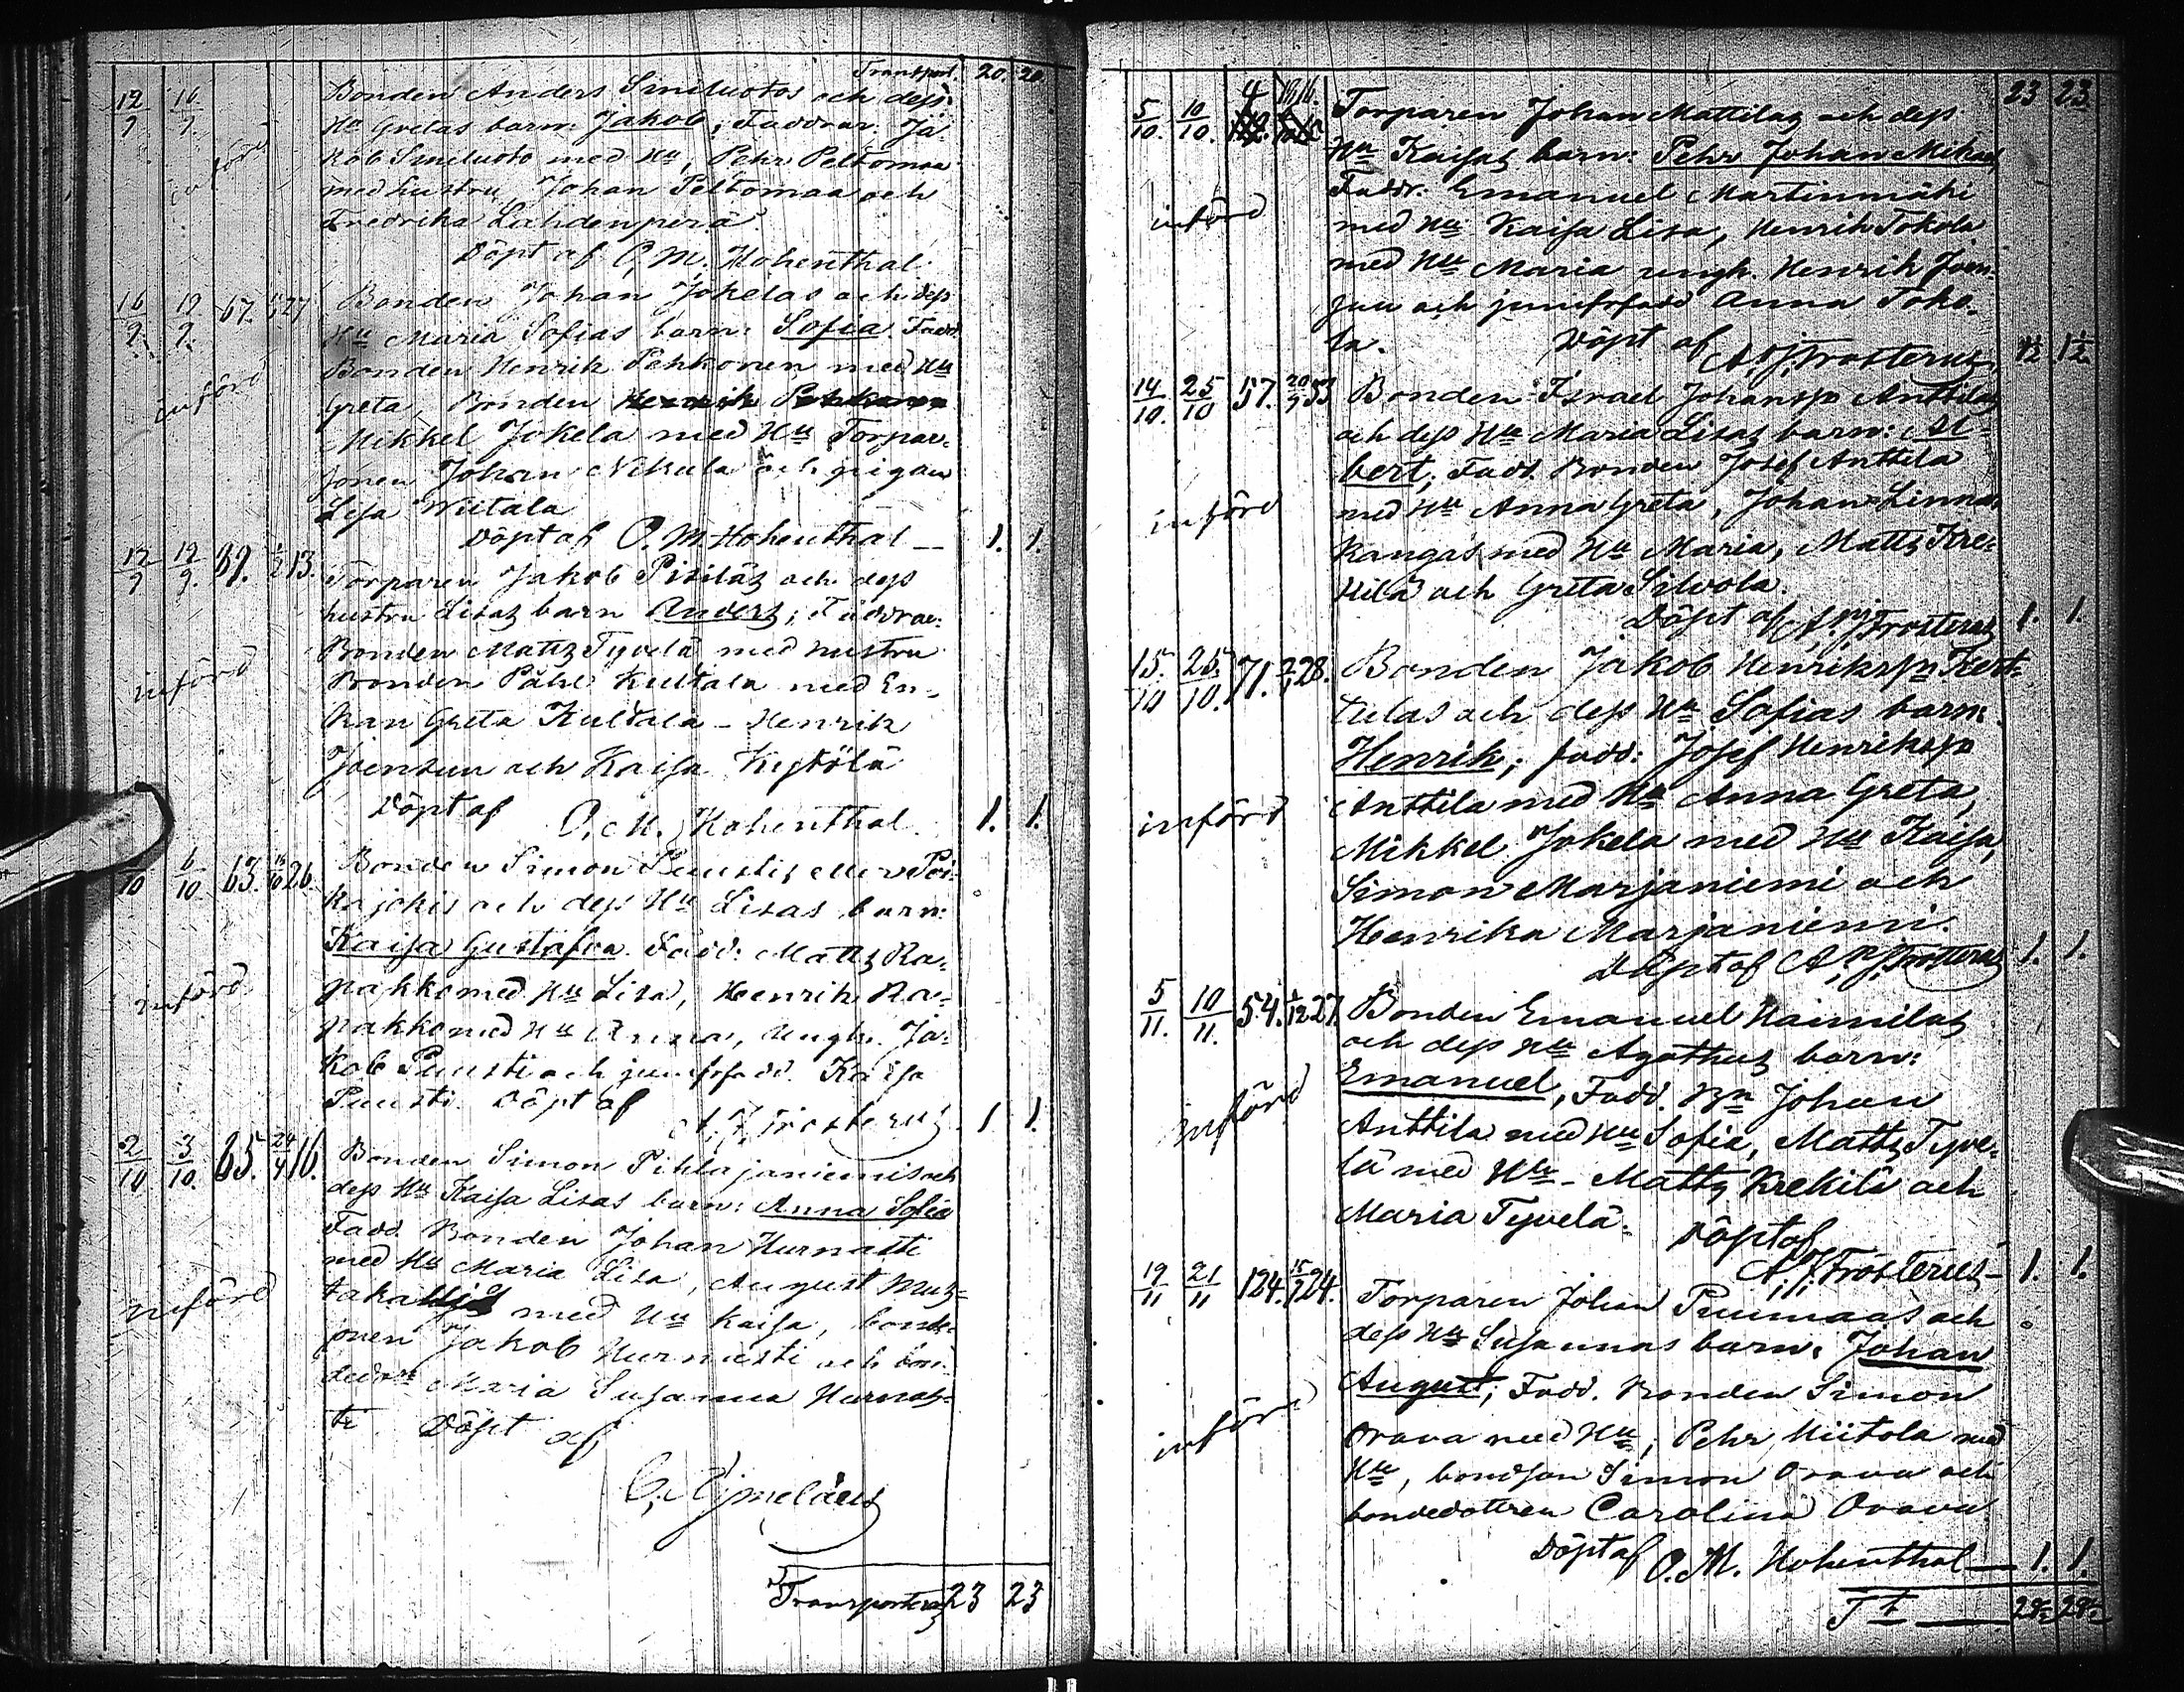 Transport. 20. 20.
12/9 16/9 Bonden Anders Smiluotos och dess
Hu Gretas barn: Jakob; Faddrar: Ja-
införd
kob Smiluoto med Hu, Pehr Peltomaa
med hustru, Johan Peltomaa och
Fredrika Lahdenperä.
Döpt af O. M. Hohenthal.
16/9. 19/9. 67. Bonden Johan Jokelas och dess
Hu Maria Sofias barn: Sofia. Fadd.
Bonden Henrik Pehkonen med Hu
införd
Greta, Bonden Henrik Pehkonen
Mikkel Jokela med Hu Torpar-
sonen Johan Nikula och pigan
Lisa Wiitala
Döpt af O. M. Hohenthal — 1. 1.
17/9 19/9. 89. 1/2 13. Torparen Jakob Pisiläs och dess
hustru Lisas barn Anders; Faddrar:
Bonden Matts Tyvelä med hustru
införd
Bonden Påhl Kultala med En-
kan Greta Kultala - Henrik
Joensuu och Kaisa Kytölä
Döpt af O. M. Hohenthal. 1. 1.
/10 6/10 63. 26. Bonden Simon Puustis eller Poi-
kajokis och dess Hu Lisas barn:
Kaisa Gustafva. Fadd: Matts Ra-
införd
pakko med Hu Lisa, Henrik Ra-
pakko med Hu Anna, Ungk. Ja-
kob Puusti och jungfr fadd. Kaisa
Puusti. Döpt af
A. J. Frosterus. 1 1.
2/10 3/10. 65. 24/4 16. Bonden Simon Pihlajaniemis och
dess Hu Kaisa Lisas barn: Anna Sofia
Fadd. Bonden Johan Hurnasti
med Hu Maria Lisa, August Mus-
införd
taka med Hu Kaisa, bonde-
sonen Jakob Hurnasti och bon-
dedotn Maria Susanna Hurnas-
ti. Döpt af
C.
Transporteras 23 23
23 23
5/10. 10/10. Torparen Johan Mattilas och dess
Hu Kaisas barn: Pehr Johan Mikael
Faddr. Emanuel Martinmäki
införd
med Hu Kaisa Lisa, Henrik Tokola
med Hu Maria ungk. Henrik Joen-
suu och jungfrfadd Anna Toko-
la. Döpt af A. J. Frosterus. 1½ 1½
14/10. 25/10 57. 20/9 33 Bonden Israel Johansson Anttilas
och dess Hu Maria Lisas barn: Al-
bert; Fadd. Bonden Josef Anttila
införd
med Hu Anna Greta, Johan Linna-
kangas med Hu Maria, Matts Kre-
kilä och Greta Silvola.
Döpt af A. J. Frosterus 1. 1.
15./10 25./10. 71. 28. Bonden Jakob Henrikss. Kert-
tulas och dess Hu Sofias barn:
Henrik; fadd: Josef Henrikss.
införd
Anttila med Hu Anna Greta,
Mikkel Jokela med Hu Kaisa,
Simon Marjaniemi och
Henrika Marjaniemi.
Döpt af A. J. Frosterus 1. 1.
5/11. 10/11. 54. 1/12 27. Bonden Emanuel Haimilas
och dess Hu Agathas barn:
Emanuel, Fadd. Bn Johan
införd
Anttila med Hu Sofia, Matts Tyve-
lä med Hu - Matts Krekilä och
Maria Tyvelä. Döpt af
A. J. Frosterus — 1. 1.
19/11 21/11 124. 24. Torparen Johan Puumaas och
dess Hu Susannas barn: Johan
August; Fadd. Bonden Simon
införd
Orava med Hu; Pehr Niitola med
Hu, bondson Simon Orava och
bondedottren Carolina Orava
Döpt af O. M. Hohenthal — 1. 1.
Tt — 28½ 28½